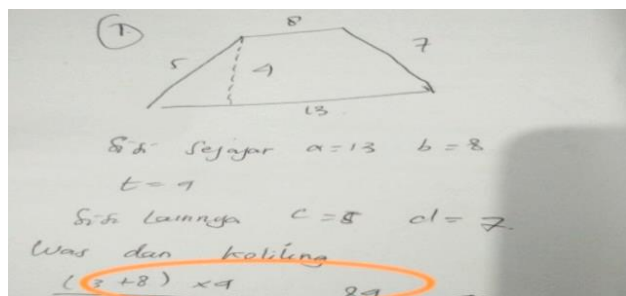 1.
8
5 4 7
13
Sisi Sejajar a = 13 b = 8
t = 4
Sisi Lainnya c = 5 d = 7
Luas dan keliling
(13 + 8) x 4 84